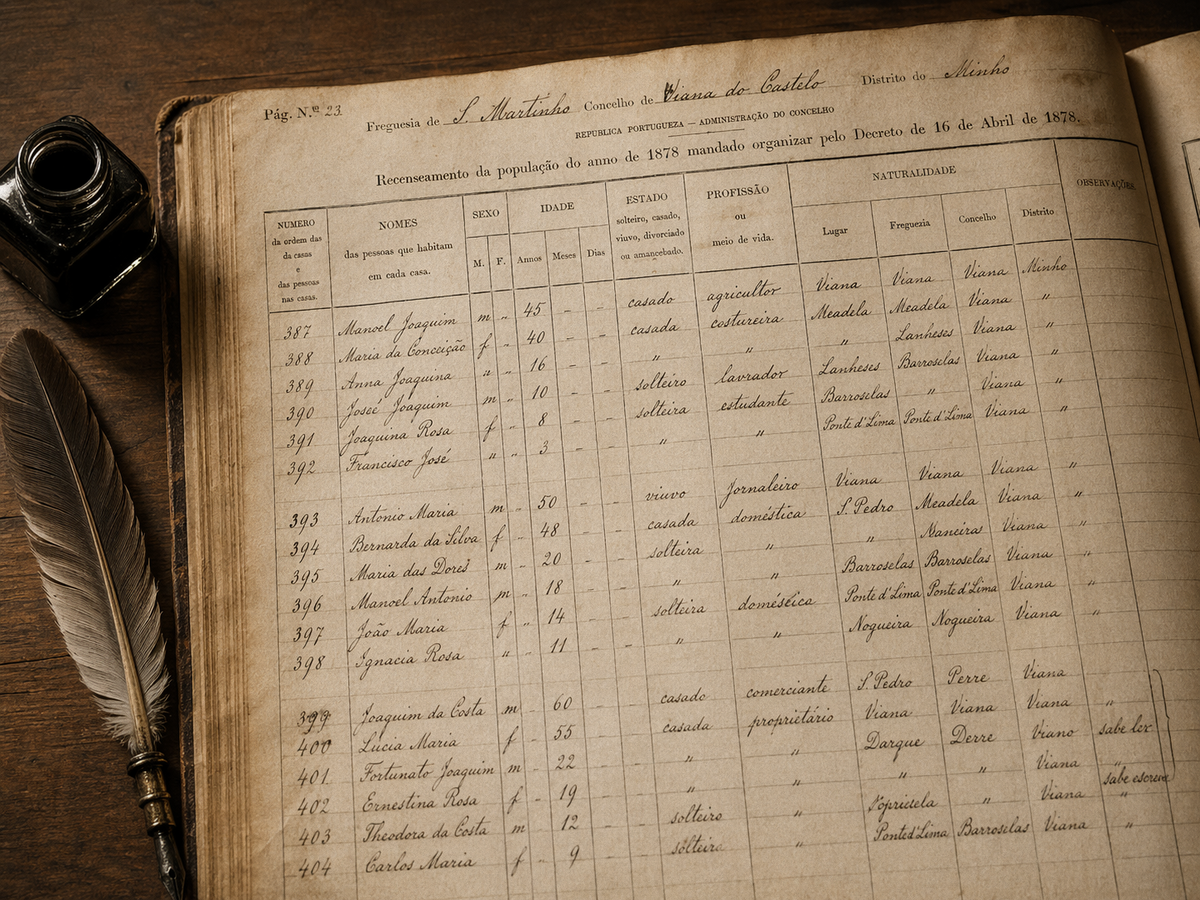 Pág. N.º 23
Freguesia de S. Martinho Concelho de Viana do Castelo Distrito do Minho
REPUBLICA PORTUGUEZA — ADMINISTRAÇÃO DO CONCELHO
Recenseamento da população do anno de 1878 mandado organizar pelo Decreto de 16 de Abril de 1878.
NUMERO da ordem das da casas e das pessoas nas casas.
NOMES das pessoas que habitam em cada casa.
SEXO M. F.
IDADE Annos Meses Dias
ESTADO solteiro, casado, viuvo, divorciado ou amancebado.
PROFISSÃO ou meio de vida.
NATURALIDADE Lugar Freguezia Concelho Distrito
OBSERVAÇÕES.
387 Manoel Joaquim m " 45 - - casado agricultor Viana Viana Viana Minho
388 Maria da Conceição f " 40 - - casada costureira Meadela Meadela Viana "
389 Anna Joaquina " " 16 - " " " Lanheses Viana "
390 Joseé Joaquim m " 10 - solteiro lavrador Lanheses Barroselas Viana "
391 Joaquina Rosa f " 8 - - solteira estudante Barroselas " Viana "
392 Francisco José " " 3 - - " " Ponte d'Lima Ponte d'Lima Viana "
393 Antonio Maria m - 50 - - viuvo Jornaleiro Viana Viana Viana "
394 Bernarda da Silva f " 48 - - casada doméstica S. Pedro Meadela Viana "
395 Maria das Dores m - 20 - - solteira " " Viana "
396 Manoel Antonio m " 18 - - " " Barroselas Barroselas Viana "
397 João Maria f " 14 - - solteira Ponte d'Lima Ponte d'Lima Viana "
398 Ignacia Rosa " " 11 - - " " Nogueira Nogueira Viana
399 Joaquim da Costa m - 60 - - casado comerciante S. Pedro Perre Viana
400 Lucia Maria f - 55 - - casada proprietário Viana Viana Viana "
401 Fortunato Joaquim m - 22 - - " " Darque Derre Viano sabe ler
402 Ernestina Rosa f - 19 - - " " " " Viana "
403 Theodora da Costa m - 12 - - solteiro " " Viana "
404 Carlos Maria f " 9 - - " Ponted'Lima Barroselas Viana "